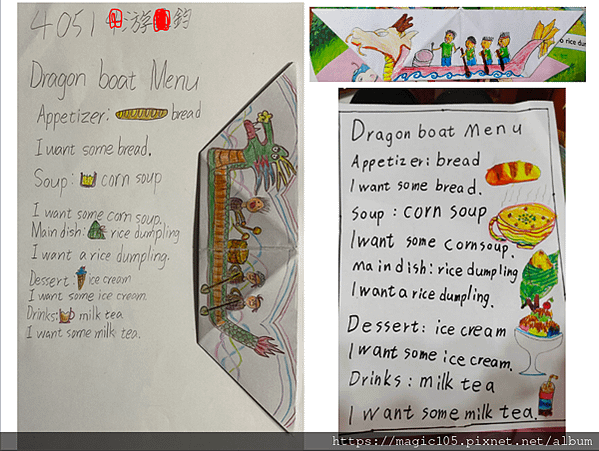 4051
游
鈞
Dragon boat Menu
Appetizer: bread
I want some bread.
Soup: corn soup
I want some corn soup.
Main dish: rice dumpling
I want a rice dumpling.
Dessert: ice cream
I want some ice cream.
Drinks: milk tea
I want some milk tea.
a rice dum
Dragon boat Menu
Appetizer: bread
I want some bread.
Soup: corn soup
I want some cornsoup.
main dish: rice dumpling
I want a rice dumpling.
Dessert: ice cream
I want some ice cream.
Drinks: milk tea
I want some milk tea.
https://magic105.pixnet.net/album